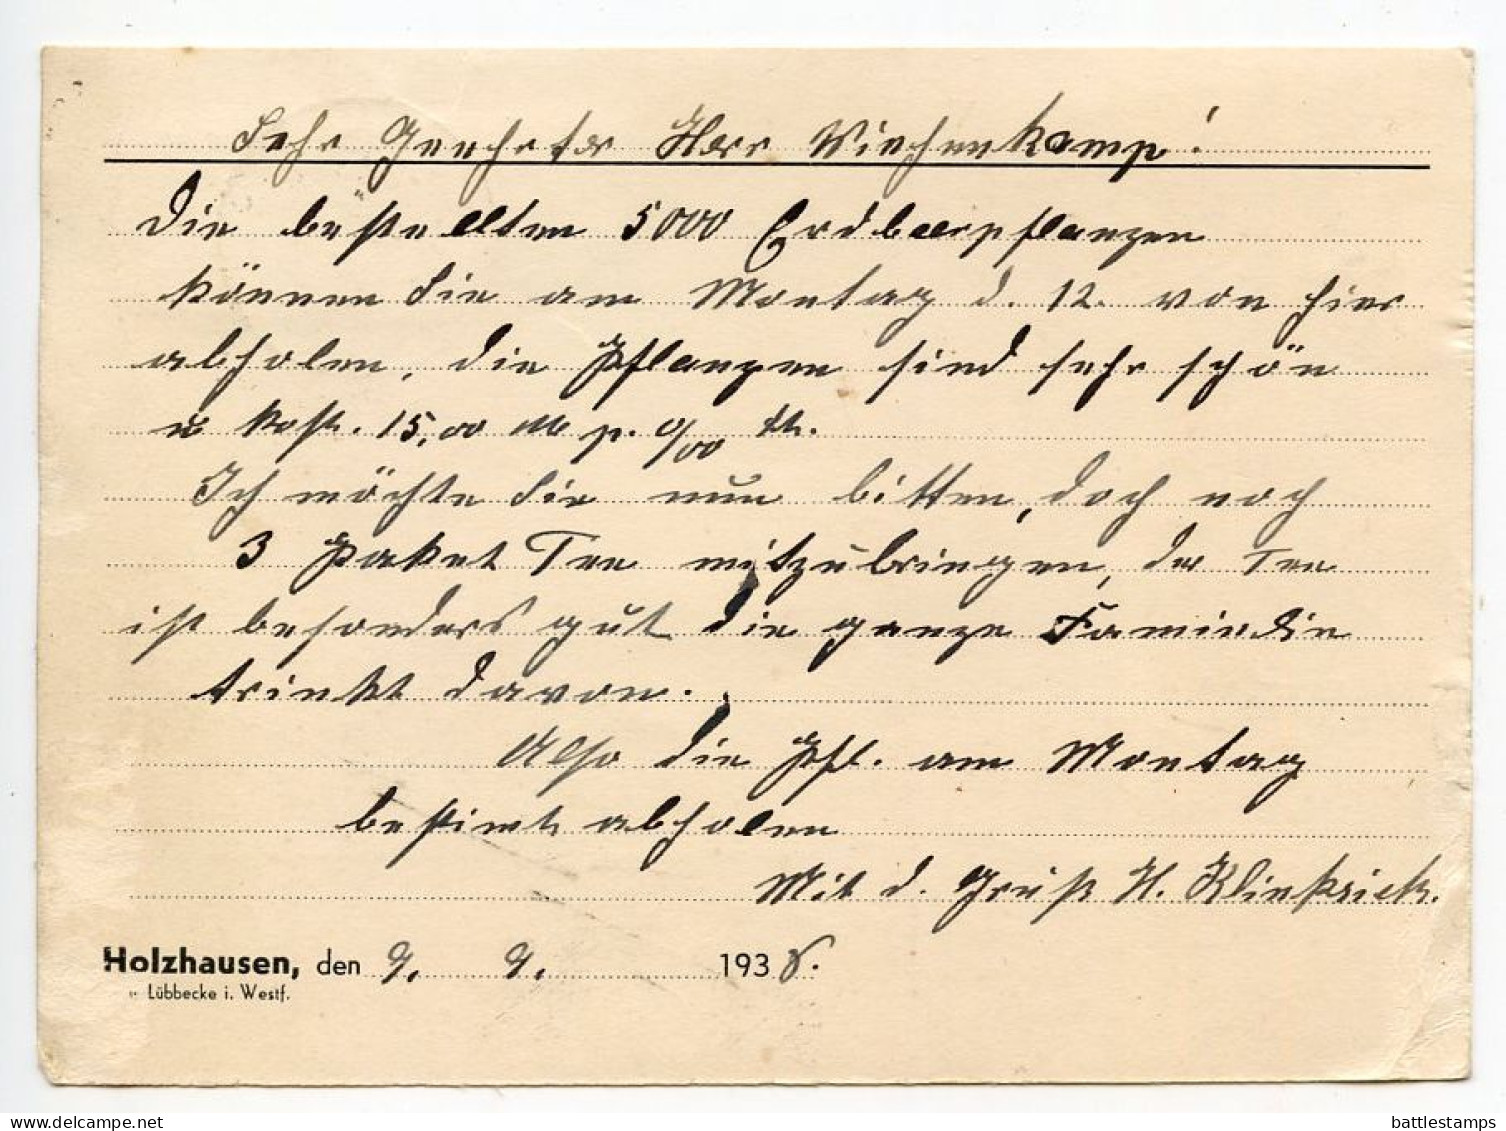 Sehr Geehrter Herr Wiehenkamp!
Die bestellten 5000 Erdbeerpflanzen
können Sie am Montag d. 12. von hier
abholen, die Pflanzen sind sehr schön
u kost. 15,00 M p. 0/00 St.
Ich möchte Sie nun bitten, doch noch
3 Paket Tee mitzubringen, der Tee
ist besonders gut die ganze Familie
trinkt davon.
Also die Pfl. am Montag
bestimt abholen
Mit d. Gruß H. Klinksiek.
Holzhausen, den 9. 9. 1938.
Lübbecke i. Westf.
battlestamps
delcampe.net